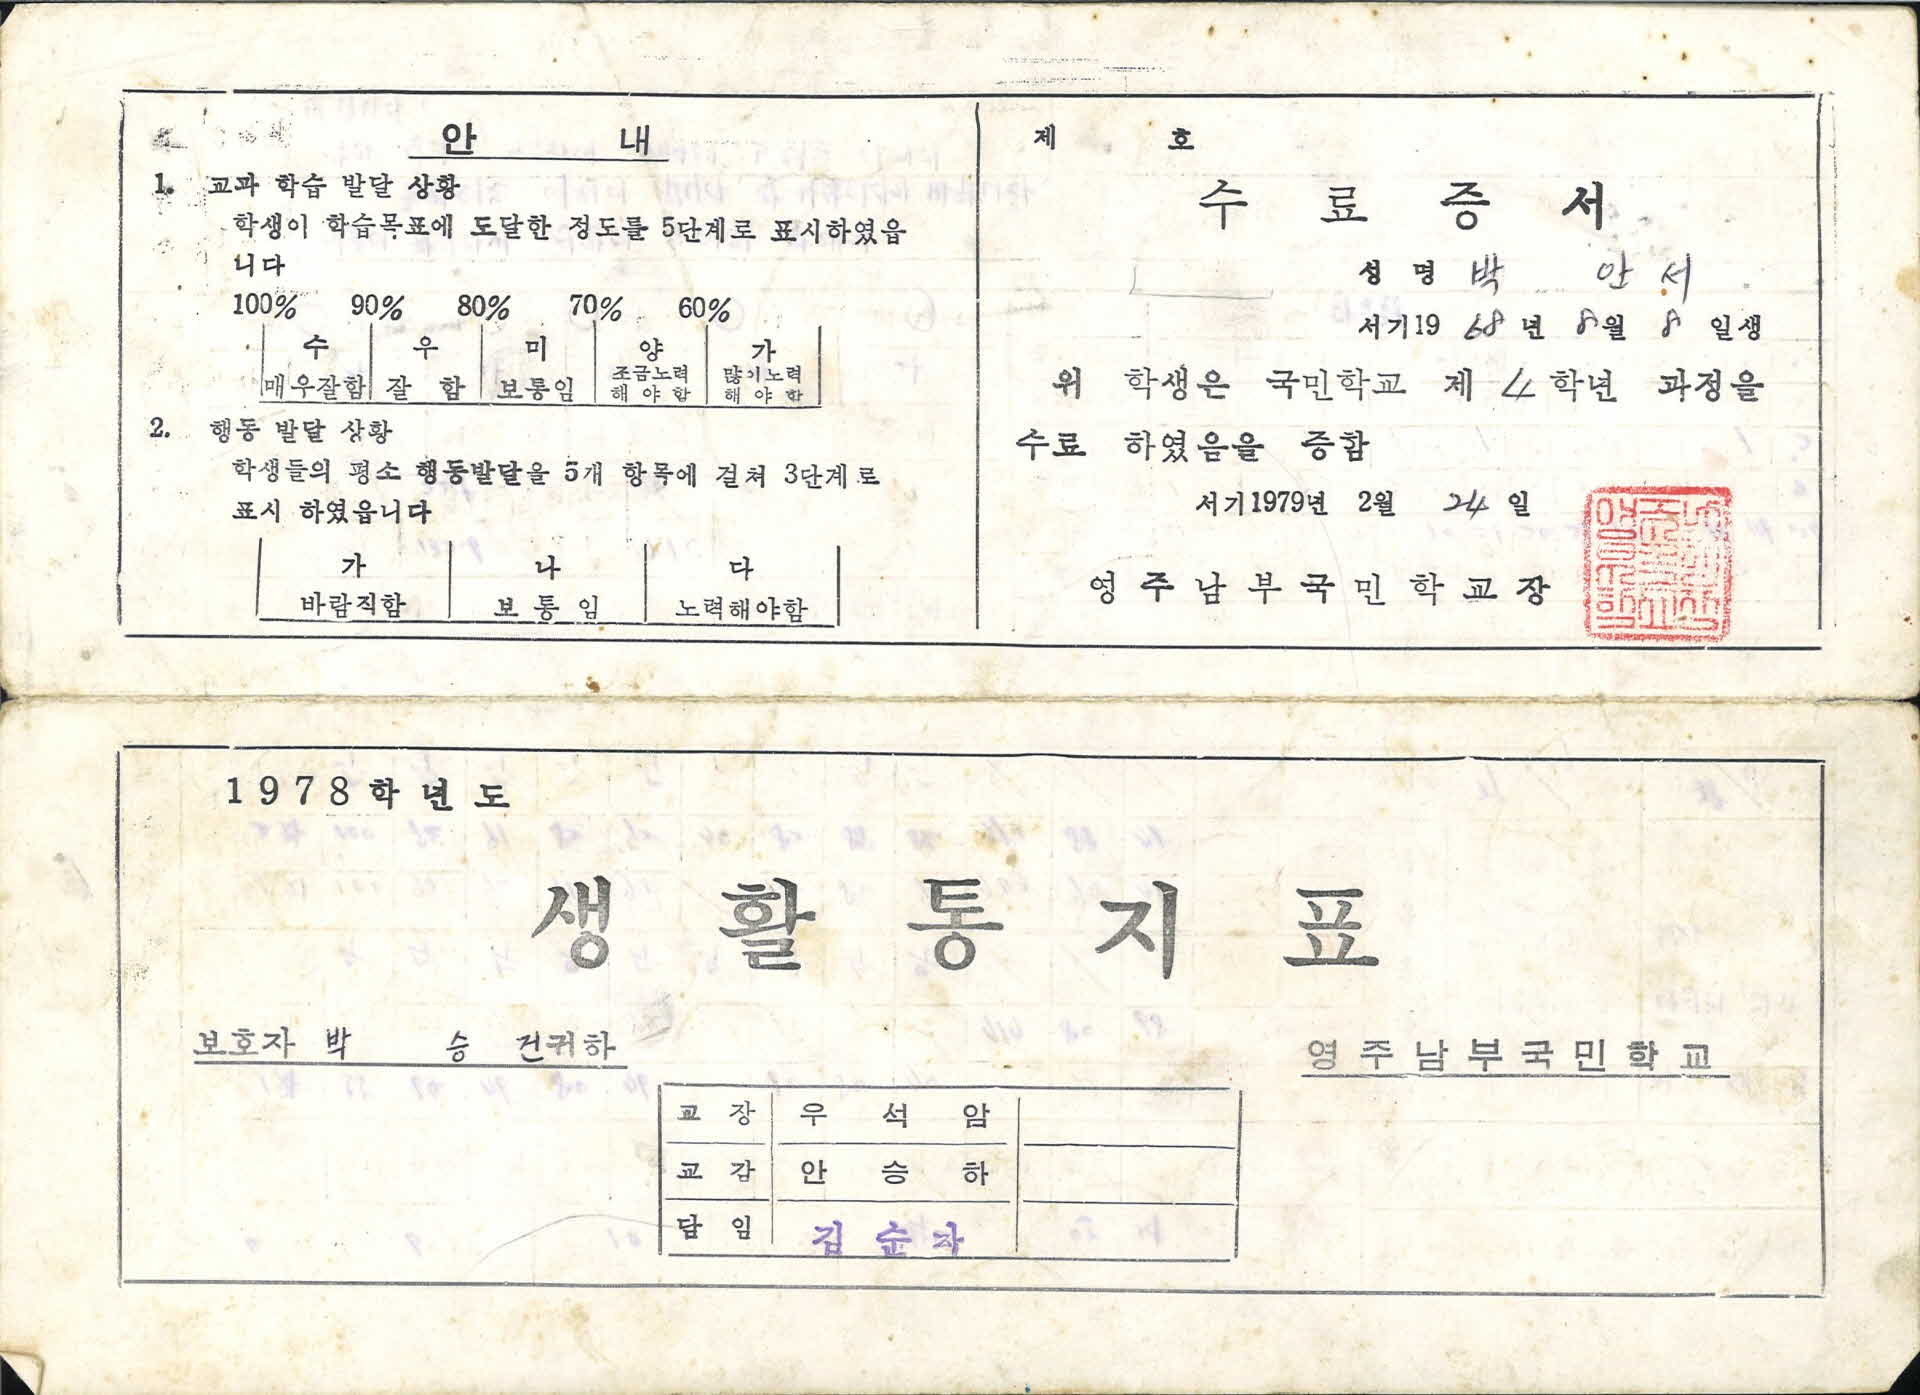 안 내
1. 교과 학습 발달 상황
학생이 학습목표에 도달한 정도를 5단계로 표시하였읍
니다
100% 90% 80% 70% 60%
수 우 미 양 가
매우잘함 잘 함 보통임 조금노력 해야함 많이노력 해야함
2. 행동 발달 상황
학생들의 평소 행동발달을 5개 항목에 걸쳐 3단계로
표시 하였읍니다
가 나 다
바람직함 보통임 노력해야함
제 호
수료증서
성명 박 안서
서기19 68년 8월 8일생
위 학생은 국민학교 제 4학년 과정을
수료 하였음을 증함
서기1979년 2월 24일
영주남부국민학교장
1978학년도
생활통지표
보호자 박 승 건귀하
영주남부국민학교
교장 우석암
교감 안승하
담임 김순자